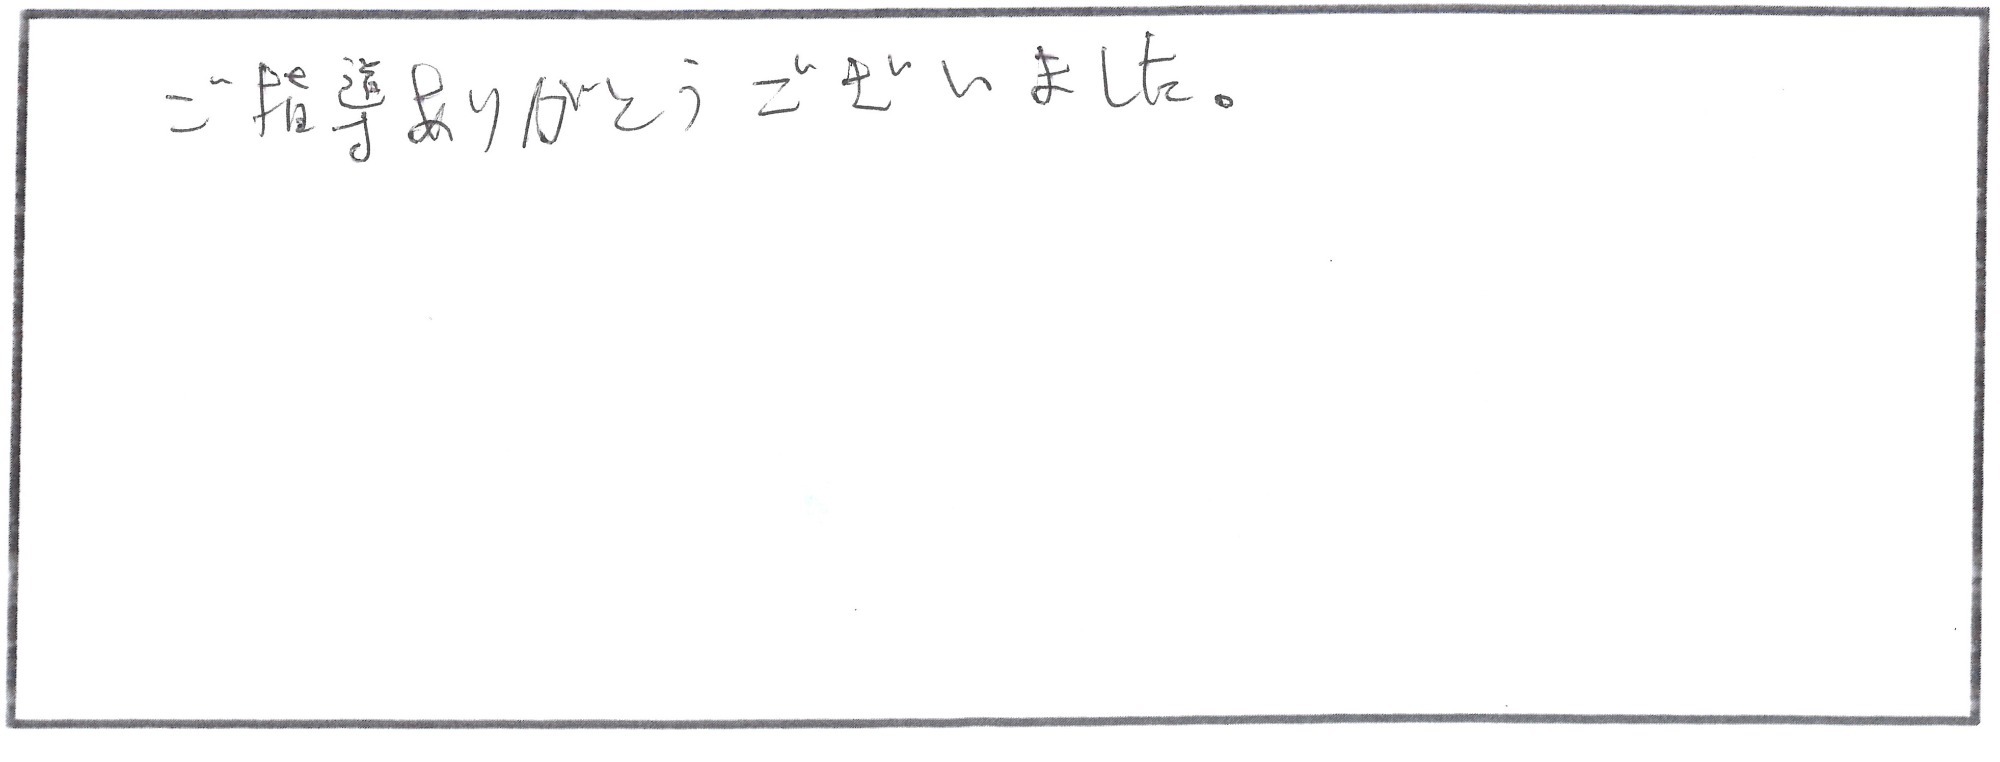 ご指導ありがとうございました。